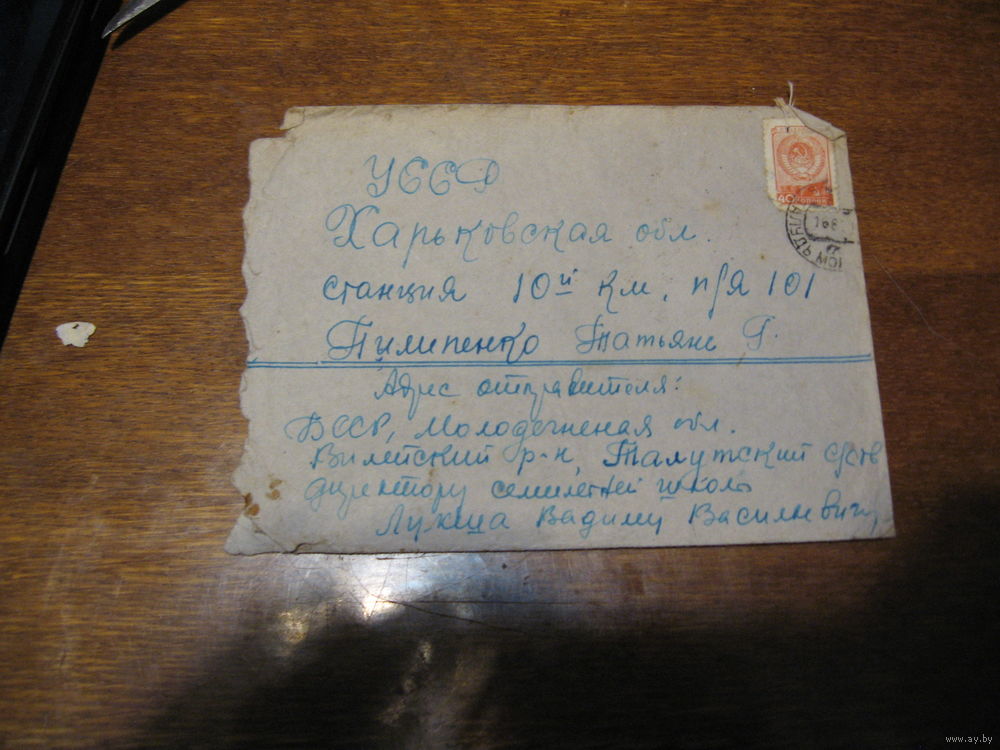 УССР
Харьковская обл.
станция 10й км, п/я 101
Пилипенко Татьяне Г.
Адрес отправителя:
БССР, Молодечненая обл.
Вилейский р-н, Талутский с/сов
директору семилетней школы
Лукша Вадиму Васильевичу
40
www.ay.by